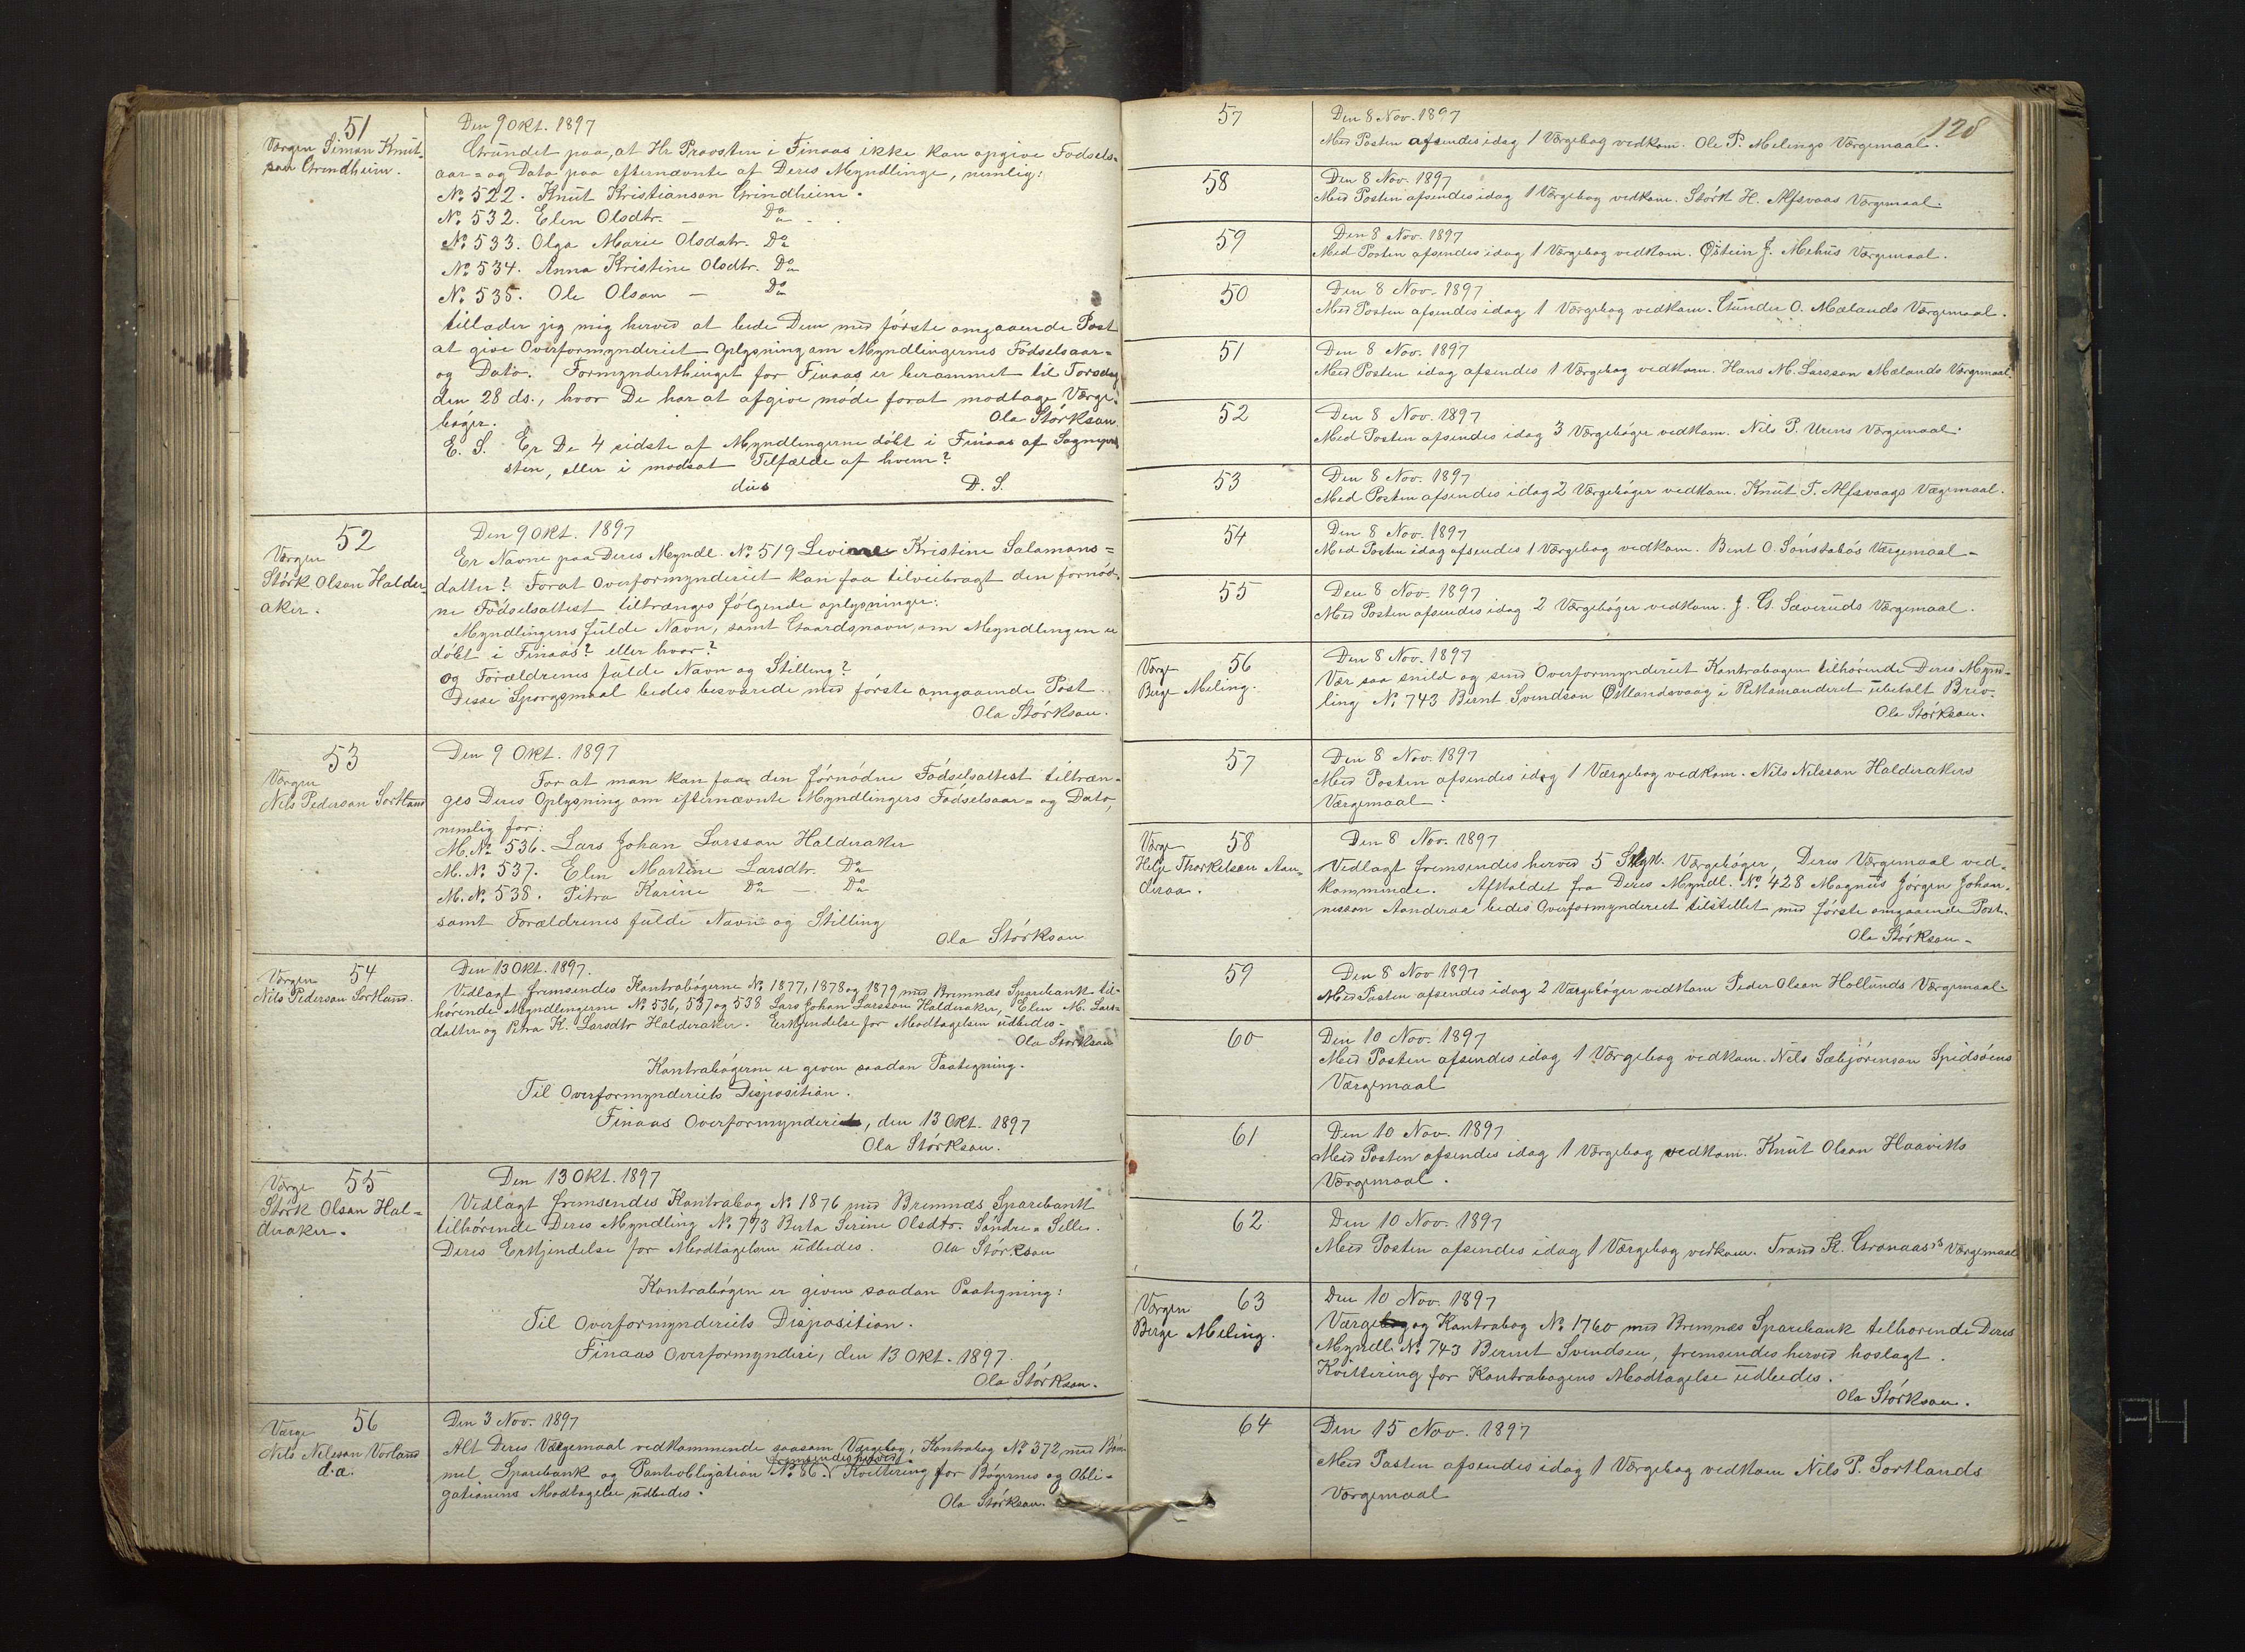 51
Værgen Simon Knut-
son Grindheim.
Den 9 Okt. 1897
Grundet paa, at Hr Provsten i Finaas ikke kan opgive Fodsels-
aar= og Dato paa efternævnte af Deres Myndlinge, nemlig:
No 522. Knut Kristianson Grindheim.
No 532. Elen Olsdtr. — Do
No 533. Olga Marie Olsdatr. Do
No 534. Anna Kristine Olsdtr. Do
No 535. Ole Olson — Do
tillader jeg mig herved at bede Dem med første omgaaende Post
at give Overformynderiet Oplysning om Myndlingernes Fødselsaar=
og Dato. Formynderthinget for Finaas er berammet til Torsdag
den 28 ds., hvor De har at afgive møde forat modtage Værge-
bøger.
Ola Størkson.
E. S. Er De 4 sidste af Myndlingerne døbt i Finaas af Sognepre-
sten, eller i modsat Tilfælde af hvem?
D. S.
52
Værgen
Størk Olson Halder-
aker.
Den 9 Okt. 1897
Er Navne paa Deres Myndl. No 519 Kristine Salamons=
datter? Forat Overformynderiet kan faa tilveibragt den fornød-
ne Fødselsattest tiltrænges følgende oplysninger:
Myndlingens fulde Navn, samt Gaardsnavn, om Myndlingen er
døbt i Finaas? eller hvor?
og Forældrenes fulde Navn og Stilling?
Disse Spørgsmaal bedes besvarede med første omgaaende Post.
Ola Størkson.
53
Værgen
Nils Pederson Sortland
Den 9 Okt. 1897
For at man kan faa den fórnødne Fødselsattest tiltræn-
ges Deres Oplysning om efternævnte Myndlingers Fødselsaar= og Dato,
nemlig for:
M. No 536. Lars Johan Larsson Halderaker
M. No 537. Elen Martine Larsdtr. Do
M. No 538. Petra Karine Do — Do
samt Forældrenes fulde Navn og Stilling
Ola Størkson
54
Værgen
Nils Pederson Sortland.
Den 13 Okt. 1897.
Vedlagt fremsendes Kontrabøgerne No 1877, 1878 og 1879 med Bremnæs Sparebank til-
hørende Myndlingerne No 536, 537 og 538 Lars Johan Larsson Halderaker, Elen M. Lars=
datter og Petra K. Larsdtr Halderaker. Erkjendelse for Modtagelsen udbedes.
Ola Størkson
Kontrabøgerne er given saadan Paategning.
Til Overformynderiets Disposition.
Finaas Overformynderi, den 13 Okt. 1897
Ola Størkson.
55
Værge
Størk Olson Hal=
deraker.
Den 13 Okt. 1897
Vedlagt fremsendes Kontrabog No 1876 med Bremnæs Sparebank
tilhørende Deres Myndling No 773 Berta Serine Olsdtr. Søndre= Selle.
Deres Erkjendelse for Modtagelsen udbedes. Ola Størkson
Kontrabøgen er given saadan Paategning:
Til Overformynderiets Disposition.
Finaas Overformynderi, den 13 Okt. 1897.
Ola Størkson.
56
Værge
Nils Nilsson Vorland
d.æ.
Den 3 Nov. 1897
Alt Deres Værgemaal vedkommende saasom Værgebog, Kontrabog No 372 med Bøm-
mel Sparebank og Panteobligation No 86. fremsendes herved. Kvittering for Bøgernes og Obli=
gationens Modtagelse udbedes.
Ola Størkson.
128
57
Den 8 Nov. 1897
Med Posten afsendes idag 1 Værgebog vedkom. Ole P. Melings Værgemaal.
58
Den 8 Nov. 1897
Med Posten afsendes idag 1 Værgebog vedkom. Størk H. Alfsvaas Værgemaal.
59
Den 8 Nov. 1897
Med Posten afsendes idag 1 Værgebog vedkom. Østein J. Mehus Værgemaal.
50
Den 8 Nov. 1897
Med Posten afsendes idag 1 Værgebog vedkom. Gunder O. Mælands Værgemaal.
51
Den 8 Nov. 1897
Med Posten idag afsendes 1 Værgebog vedkom. Hans M. Larsson Mælands Værgemaal.
52
Den 8 Nov. 1897
Med Posten afsendes idag 3 Værgebøger vedkom. Nils P. Urens Værgemaal.
53
Den 8 Nov. 1897
Med Posten afsendes idag 2 Værgebøger vedkom. Knut T. Alfsvaags Vægemaal.
54
Den 8 Nov. 1897
Med Posten idag afsendes 1 Værgebog vedkom. Bent O. Sønstabøs Værgemaal=
55
Den 8 Nov. 1897
Med Posten afsendes idag 2 Værgebøger vedkom. J. G. Sæveruds Værgemaal.
56
Værge
Berge Meling.
Den 8 Nov. 1897
Vær saa snild og send Overformynderiet Kontrabogen tilhørende Deres Mynd-
ling No 743 Bernt Svendson Østlandsvaag i Rekomanderet ubetalt Brev.
Ola Størkson.
57
Den 8 Nov. 1897
Med Posten afsendes idag 1 Værgebog vedkom. Nils Nilsson Halderakers
Værgemaal.
58
Værge
Helje Thorkelson Aan-
deraa.
Den 8 Nov. 1897
Vedlagt fremsendes herved 5 Stk. Værgebøger, Deres Værgemaal ved-
kommende. Afkaldet fra Deres Myndl. No 428 Magnus Jørgen Johan-
nesson Aanderaa bedes Overformynderiet tilstillet med første omgaaende Post.
Ola Størkson.
59
Den 8 Nov 1897
Med Posten afsendes idag 2 Værgebøger vedkom Peder Olson Hollunds Værgemaal.
60
Den 10 Nov. 1897
Med Posten afsendes idag 1 Værgebog vedkom. Nils Sæbjørnson Spidsøens
Værgemaal
61
Den 10 Nov. 1897
Med Posten afsendes idag 1 Værgebog vedkom. Knut Olson Haaviks
Værgemaal.
62
Den 10 Nov. 1897
Med Posten afsendes idag 1 Værgebog vedkom. Trond K. Gronaas's Værgemaal
63
Værgen
Berge Meling.
Den 10 Nov. 1897
Værgebog og Kontrabog No 1760 med Bremnes Sparebank tilhorende Deres
Myndl. No 743 Bernt Svendsen, fremsendes herved hoslagt.
Kvittering for Kontrabogens Modtagelse udbedes.
Ola Størkson.
64
Den 15 Nov. 1897
Med Posten afsendes idag 1 Værgebog vedkom Nils P. Sortlands
Værgemaal